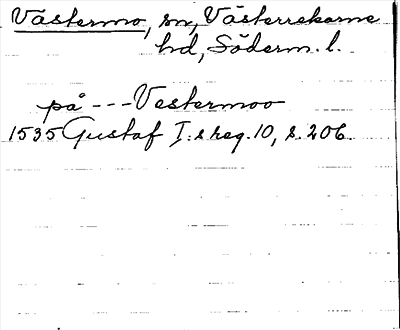 Västermo, sn, Västerrekarne
hd, Söderm. l.
på --- Vestermoo
1535 Gustaf I:s reg. 10, s. 206.